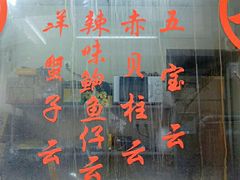 五宝云
赤贝柱云
辣味鮑鱼仔云
洋蟹子云